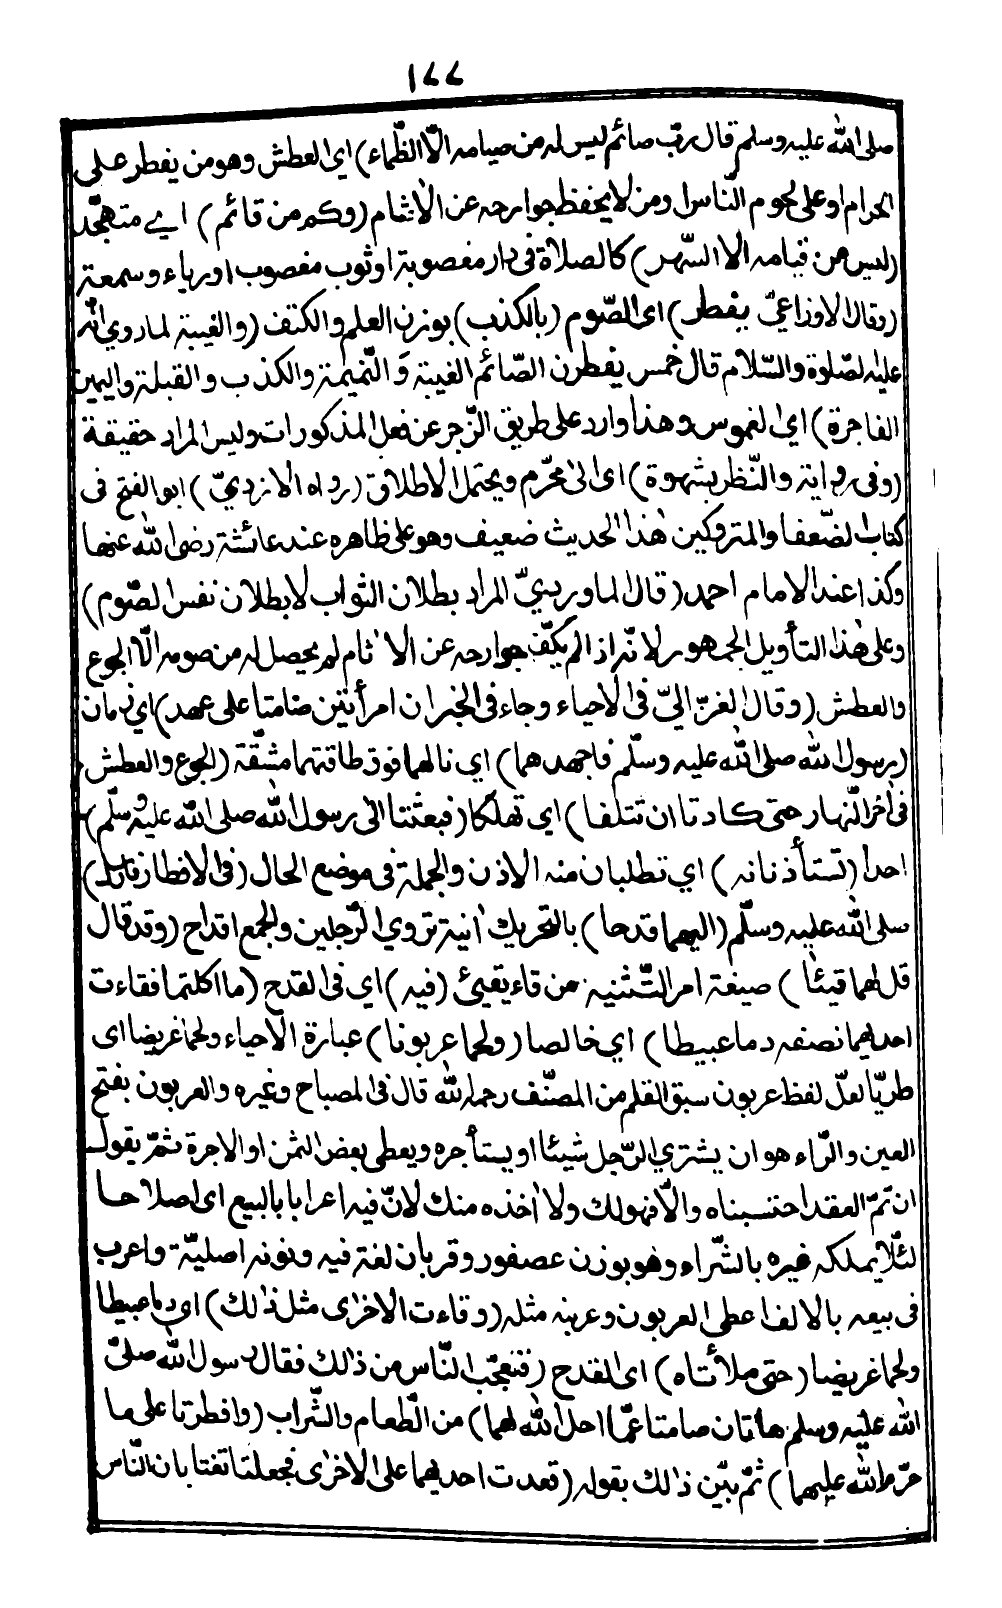 ١٧٧
صلى الله عليه وسلم قال ربّ صائم ليس له من صيامه الّا الظّماء) اي العطش وهو من يفطر على
الحرام او على لحوم النّاس او من لا يحفظ جوارحه عن الاٰثام (وكم من قائم) اي متهجّد
(ليس من قيامه الا السّهر) كالصلاة في دار مغصوبة او ثوب مغصوب او رياء وسمعة
(وقال الاوزاعيّ يفطر) اى الصّوم (بالكذب) بوزن العلم والكتف (والغيبة لما روي انّه
عليه الصّلوة والسّلام قال خمس يفطرن الصّائم الغيبة وَ النّميمة والكذب والقبلة واليمين
الفاجرة) اي الغموس وهذا وارد على طريق الزّجر عن فعل المذكورات وليس المراد حقيقة
(وفي رواية والنّظر بشهوة) اى الى محرّم ويحتمل الاطلاق (رواه الازديّ) ابو الفتح في
كتاب الضّعفا والمتروكين هٰذا الحديث ضعيف وهو على ظاهره عند عائشة رضى الله عنها
وكذا عند الامام احمد (قال الماورديّ المراد بطلان الثواب لا بطلان نفس الصّوم)
وعلى هٰذا التأويل الجمهور لانّه اذا لم يكفّ جوارحه عن الاٰثام لم يحصل له من صومه الّا الجوع
والعطش (وقال الغزّاليّ في الاحياء وجاء في الخبر ان امرأتين صامتا على عهد) اي زمان
(رسول الله صلى الله عليه وسلّم فاجهدهما) اي نالهما فوق طاقتهما مشقّة (الجوع والعطش
في اٰخر النّهار حتى كادتا ان تتلفا) اي تهلكا (فبعثتا الى رسول الله صلى الله عليه وسلّم)
احدا (تستأذنانه) اي تطلبان منه الاذن والجملة في موضع الحال (في الافطار فارسل)
صلى الله عليه وسلّم (اليهما قدحا) بالتحريك اٰنية تروي الرّجلين والجمع اقداح (وقد قال
قل لهما قيئا) صيغة امر التّثنيه من قاء يقيئ (فيه) اي في القدح (ما اكلتما فقاءت
احدهما نصفه دما عبيطا) اي خالصا (ولحما عربونا) عبارة الاحياء ولحما غريضا اى
طريّا لعلّ لفظ عربون سبق القلم من المصنّف رحمه الله قال في المصباح وغيره والعربون بفتح
العين والرّاء هو ان يشتري الرّجل شيئا او يستأجره ويعطى بعض الثمن او الاجرة ثمّ يقول
ان تمّ العقد احتسبناه والّا فهو لك ولا اٰخذه منك لانّ فيه اعرابا بالبيع اى اصلاحا
لئلّا يملكه غيره بالشّراء وهو بوزن عصفور وقربان لغة فيه ونونه اصليّة واعرب
في بيعه بالالف اعطى العربون وعربنه مثله (وقاءت الاخرٰى مثل ذٰلك) اي دما عبيطا
ولحما غريضا (حتى ملأتاه) اى القدح (فتعجّب النّاس من ذٰلك فقال رسول الله صلىّ
الله عليه وسلم هاتان صامتا عمّا احل الله لهما) من الطّعام والشّراب (وافطرتا على ما
حرّم الله عليهما) ثمّ بيّن ذٰلك بقوله (قعدت احديهما على الاخرٰى فجعلتا تغتابان النّاس